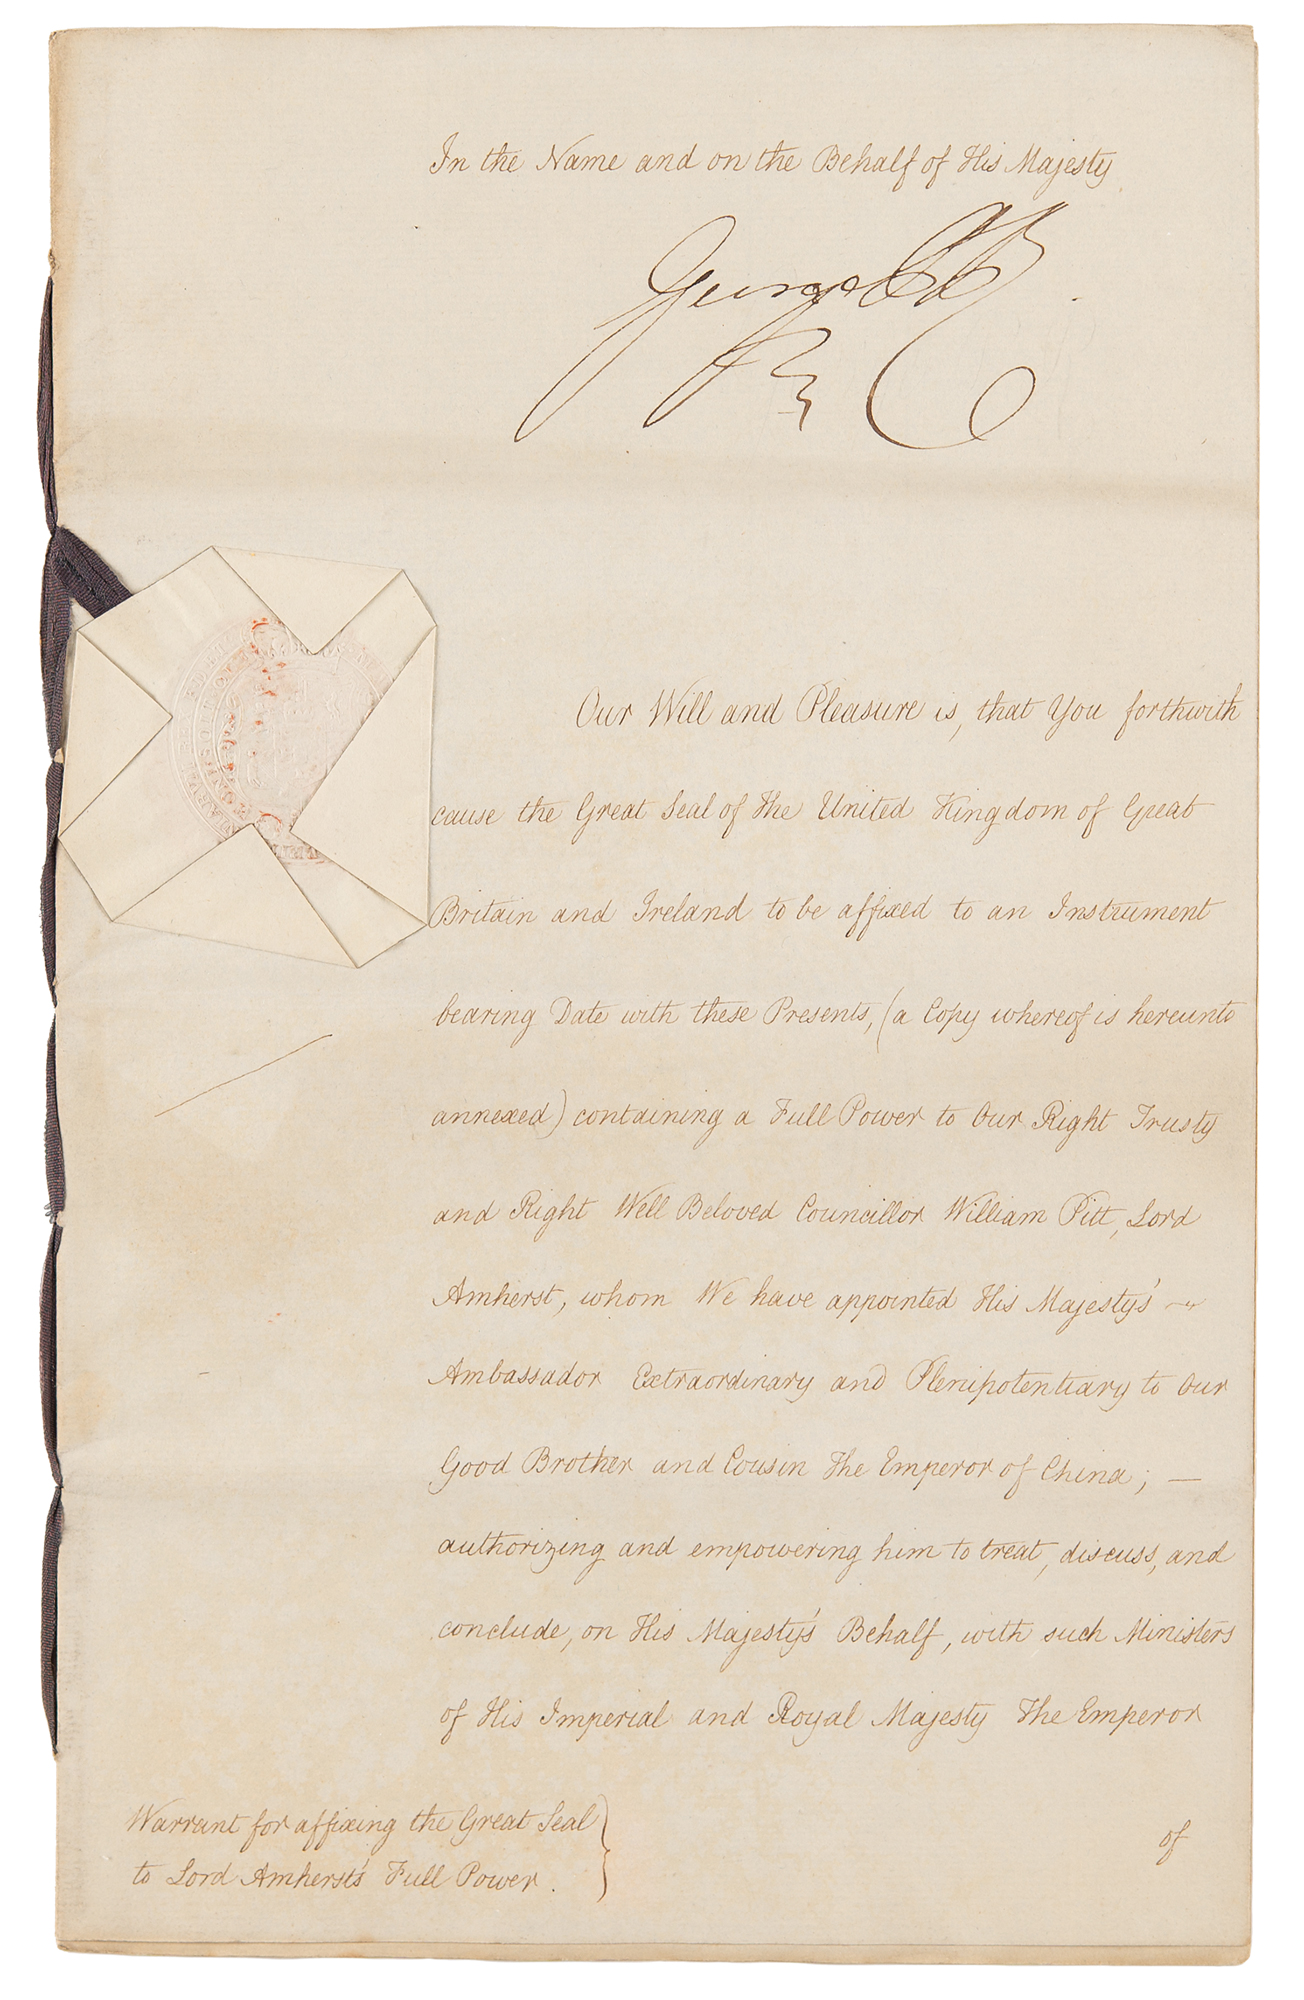 In the Name and on the Behalf of His Majesty
George P R
Our Will and Pleasure is, that You forthwith
cause the Great Seal of the United Kingdom of Great
Britain and Ireland to be affixed to an Instrument
bearing Date with these Presents, (a Copy whereof is hereunto
annexed) containing a Full Power to Our Right Trusty
and Right Well Beloved Councillor William Pitt, Lord
Amherst, whom We have appointed His Majesty's
Ambassador Extraordinary and Plenipotentiary to Our
Good Brother and Cousin The Emperor of China; —
authorizing and empowering him to treat, discuss, and
conclude, on His Majesty's Behalf, with such Ministers
of His Imperial and Royal Majesty The Emperor
of
Warrant for affixing the Great Seal
to Lord Amherst's Full Power.